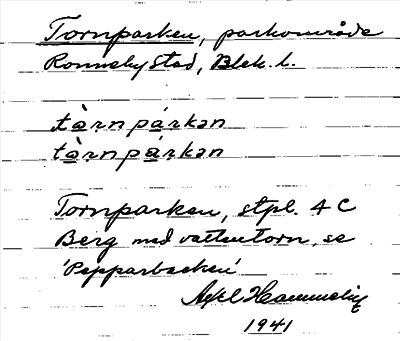 Tornparken, parkområde
Ronneby stad, Blek. l.
tò̱rnpa̱rkən
tò̱rnpa̱rkən
Tornparken, stpl. 4 C
Berg med vattentorn, se
'Pepparbacken'
Axel
1941